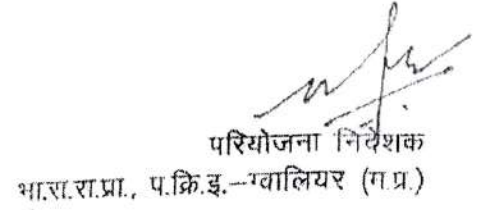 परियोजना निदेशक
भा.रा.रा.प्रा., प.क्रि.इ.–ग्वालियर (म.प्र.)